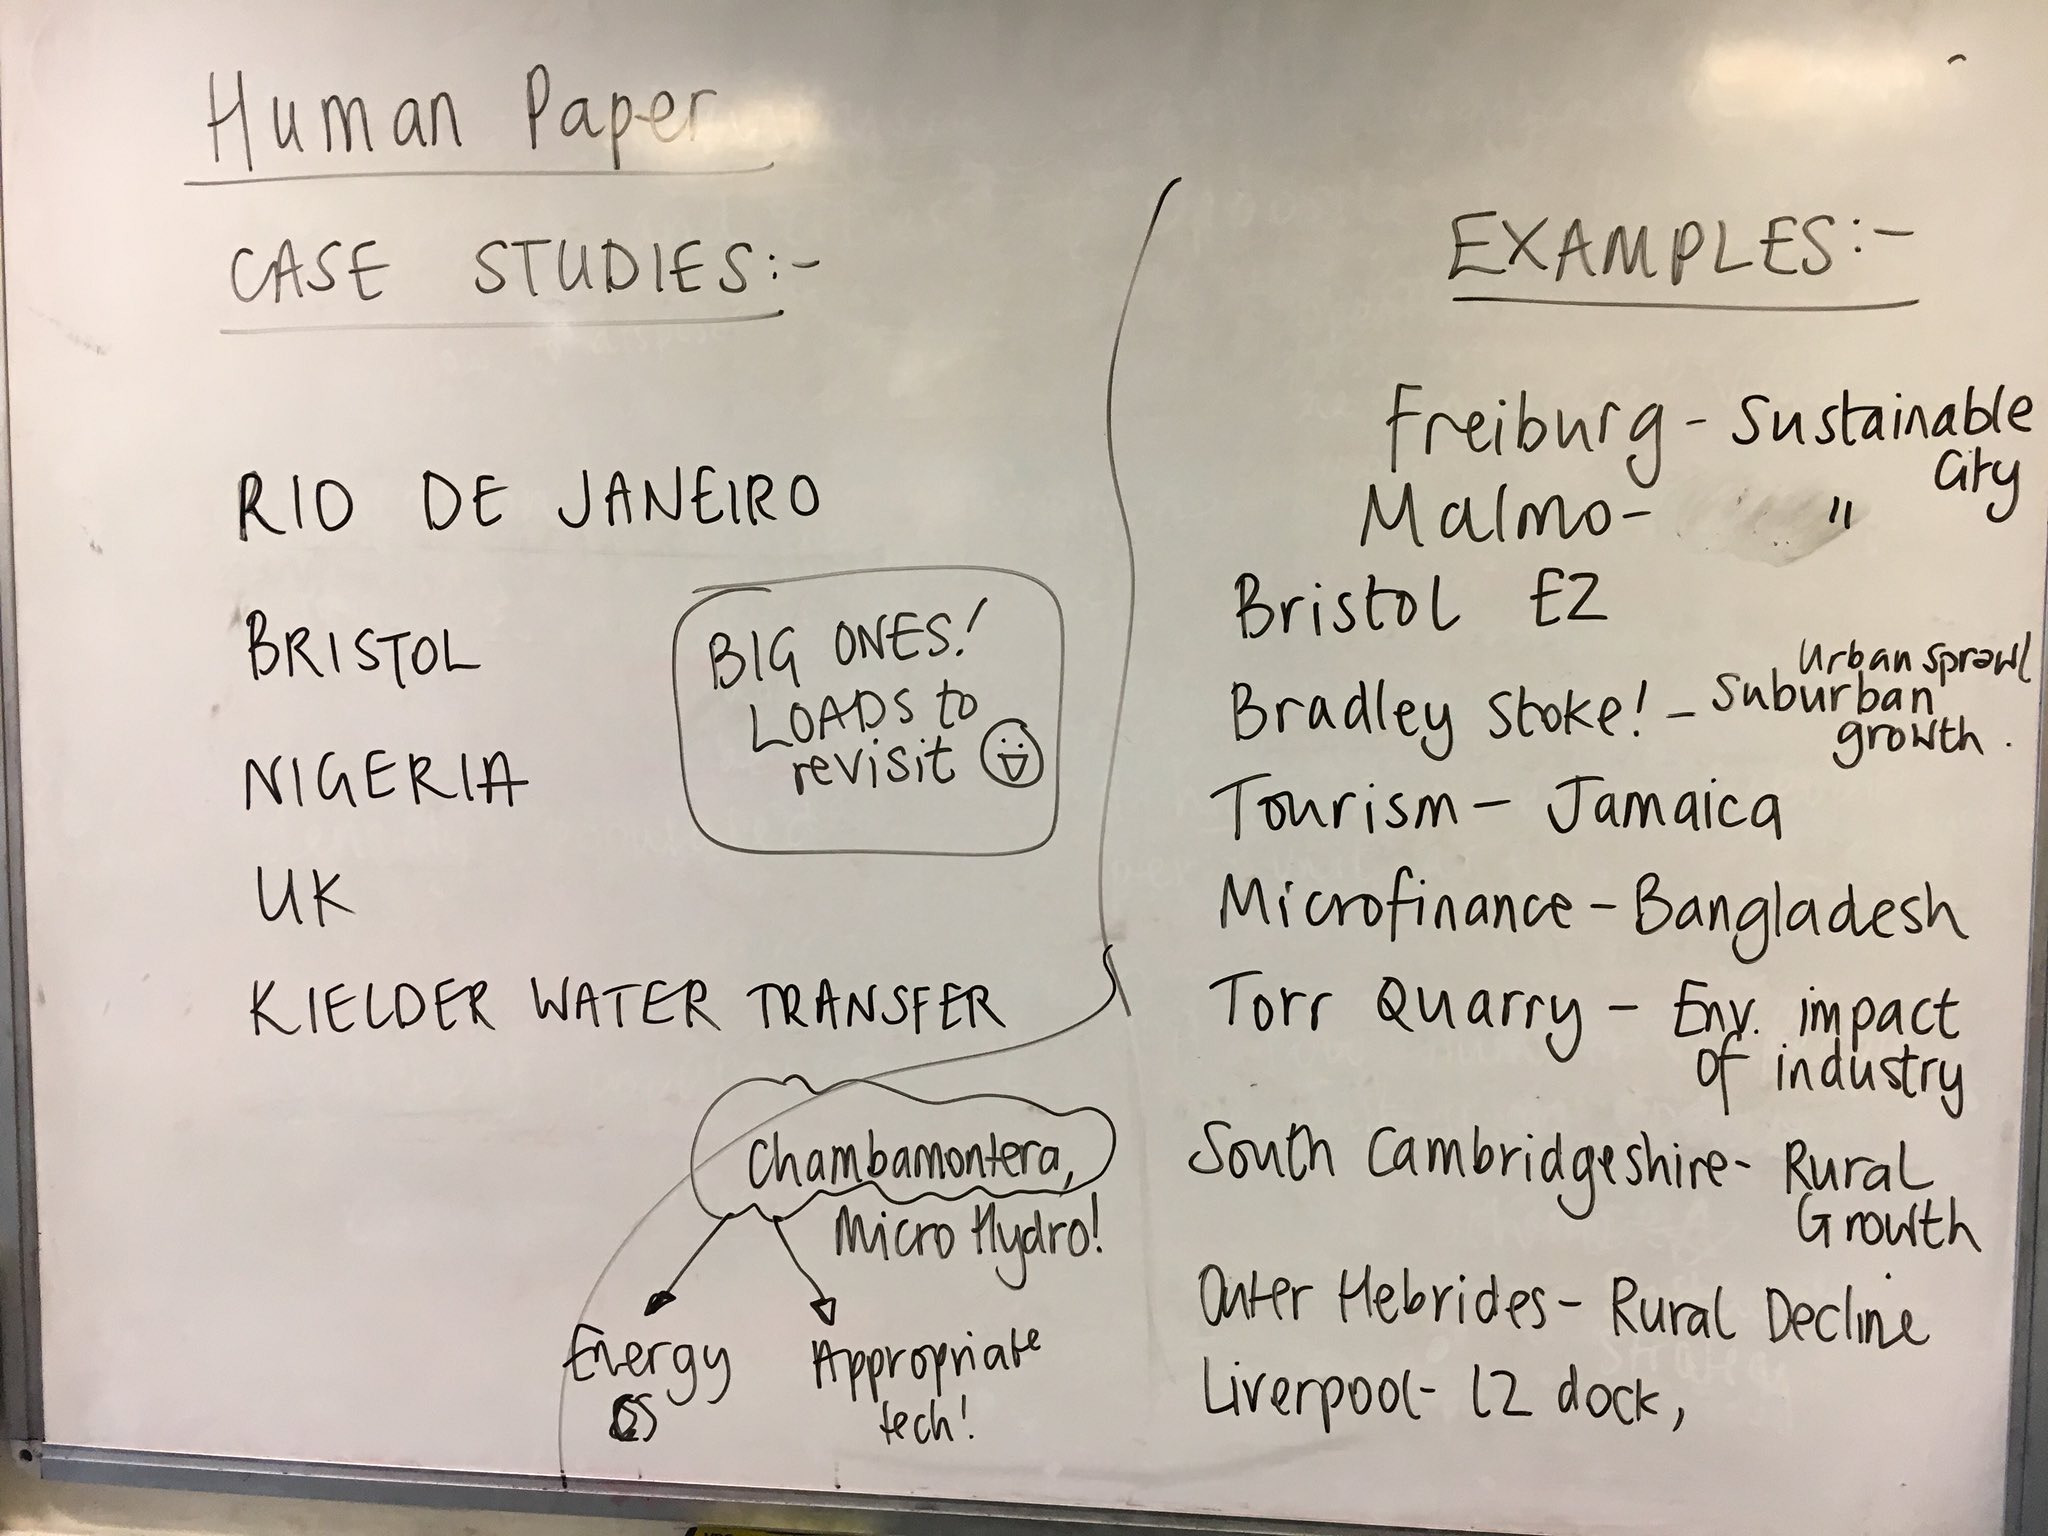 Human Paper
CASE STUDIES:-
RIO DE JANEIRO
BRISTOL
NIGERIA
UK
KIELDER WATER TRANSFER
BIG ONES!
LOADS to
revisit
Chambamontera,
Micro Hydro!
Energy
CS
Appropriate
tech!
EXAMPLES:-
Freiburg - Sustainable
City
Malmo- "
Bristol EZ
Bradley Stoke! - Suburban
growth.
Urban sprawl
Tourism - Jamaica
Microfinance - Bangladesh
Torr Quarry - Env. impact
of industry
South Cambridgeshire- Rural
Growth
Outer Hebrides- Rural Decline
Liverpool- L2 dock,